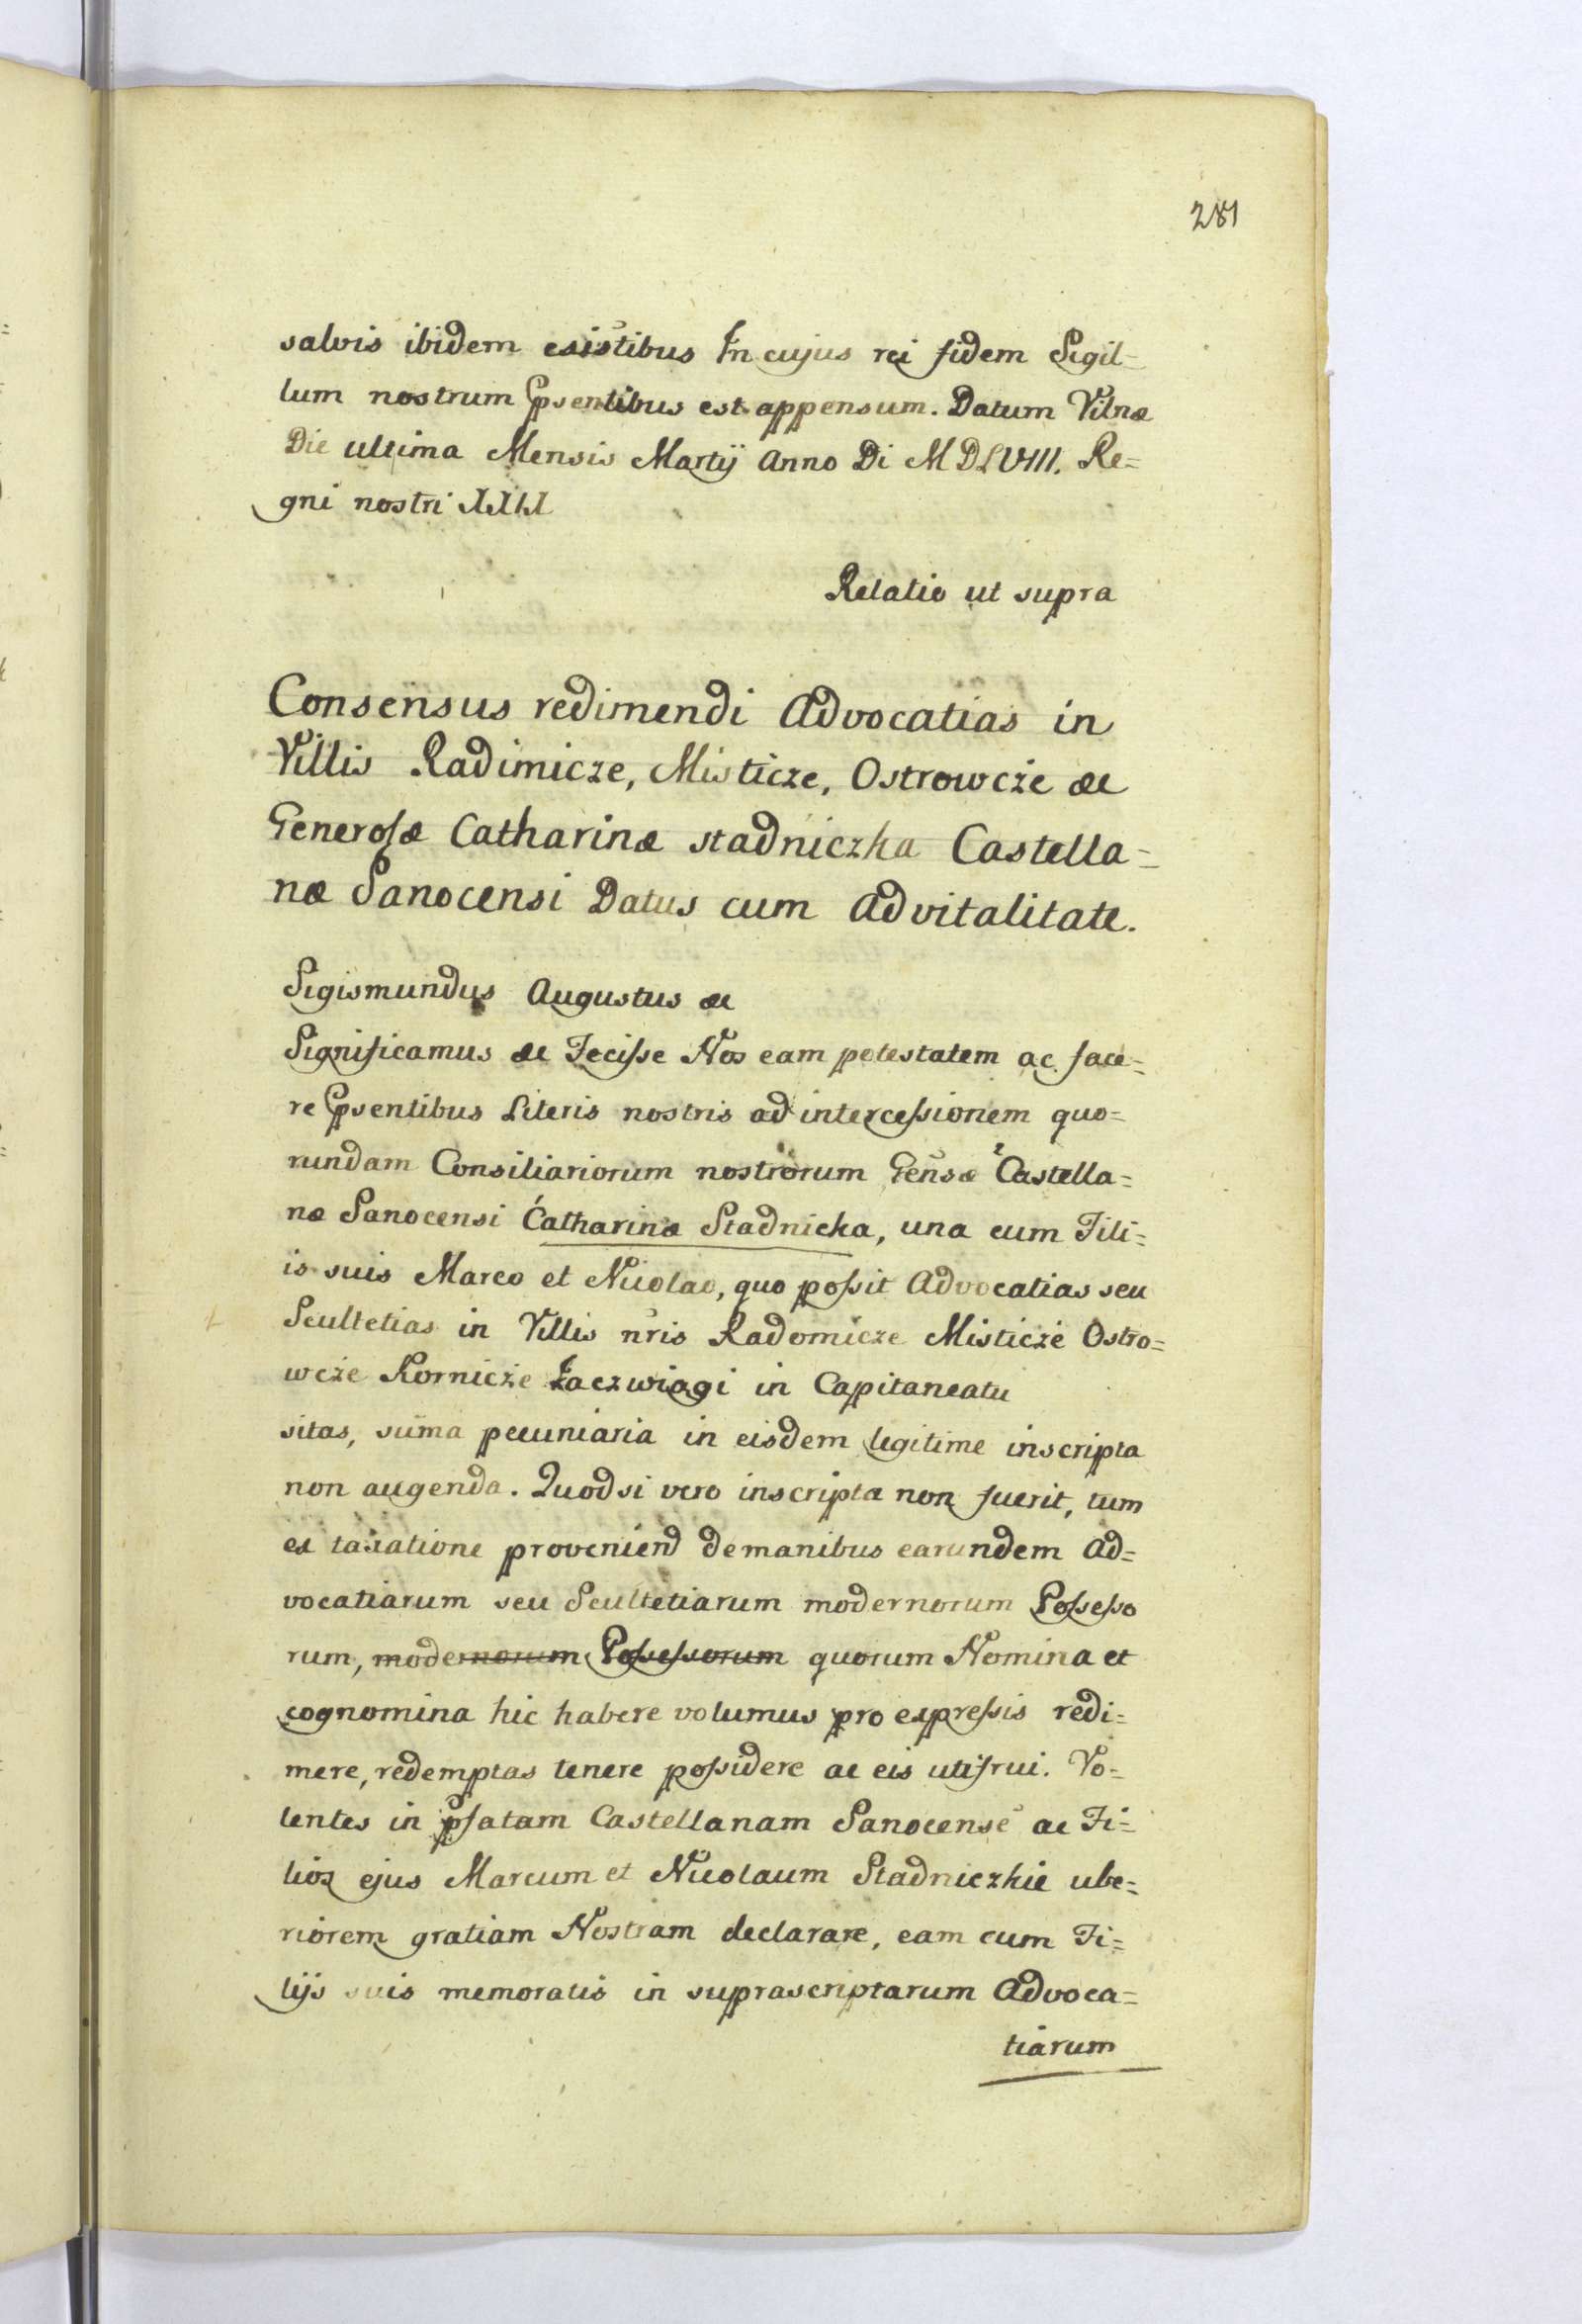 281
salvis ibidem existibus In cujus rei fidem Sigil=
lum nostrum psentibus est appensum. Datum Vilnæ
Die ultima Mensis Martij Anno Di MDLVIII. Re=
gni nostri
Relatio ut supra
Consensus redimendi Advocatias in
Villis Radimicze, Misticze, Ostrowcże &c
Generosæ Catharinæ Stadniczka Castella=
næ Sanocensi Datus cum advitalitate.
Sigismundus Augustus &c
Significamus &c Fecisse Nos eam potestatem ac face=
re psentibus Literis nostris ad intercessionem quo=
rundam Consiliariorum nostrorum Gen̄sæ Castella=
næ Sanocensi Catharinæ Stadnicka, una cum Fili=
is suis Marco et Nicolao, quo possit Advocatias seu
Scultetias in Villis nr̄is Radomicze Misticżė Ostro=
wcże Kornicże Jaczwiagi in Capitaneatu
sitas, sum̄a pecuniaria in eisdem legitime inscripta
non augenda. Quodsi vero inscripta non fuerit, tum
ex taxatione proveniend de manibus earundem Ad=
vocatiarum seu Scultetiarum modernorum Possesso
rum, modernorum Possessorum quorum Nomina et
cognomina hic habere volumus pro expressis redi=
mere, redemptas tenere possidere ac eis utifrui. Vo=
lentes in pfatam Castellanam Sanocensē ac Fi=
lios ejus Marcum et Nicolaum Stadniczkie ube=
riorem gratiam Nostram declarare, eam cum Fi=
lijs suis memoratis in suprascriptarum Advoca=
tiarum